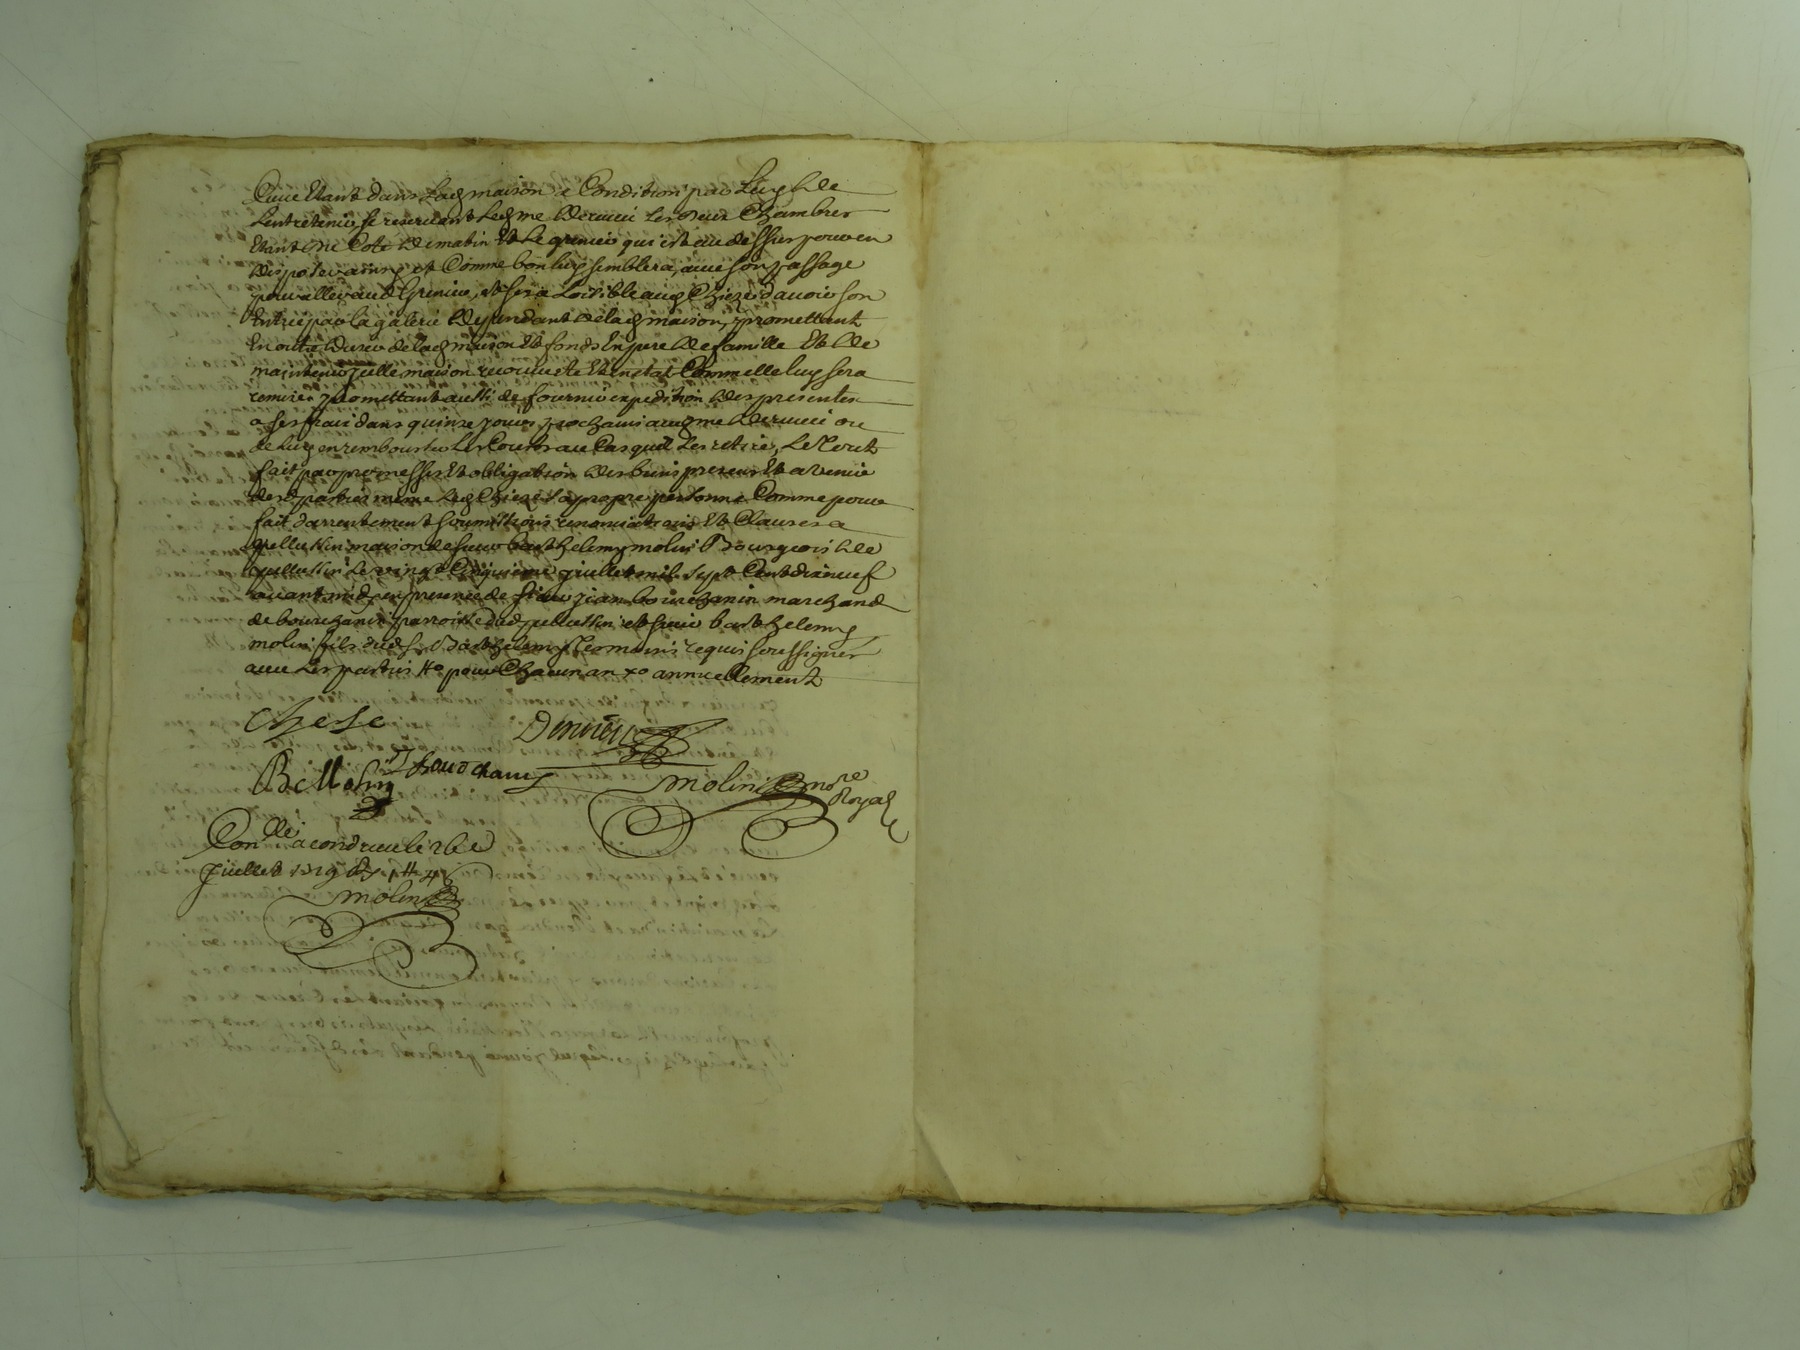 Cuve Etant dans lad maison a Condition par luy de
Lentretenir se reservant led me Dervieu les deux Chambres
Etant du Coté de matin Et le grenier qui est au dessus pour en
disposer ainsy et Comme bon luy semblera, avec son passage
pour aller aud Grenier, et sera Loisible aud Chieze davoir son
Entrée par la galerie Dependant de lad maison, promettant
En outre User de lad maison Et fonds En pere de famille Et de
maintenir jcelle maison recouverte Et en etat Comme elle luy sera
remise promettant aussi de fournir expedition des presentes
a ses frais dans quinze jours prochains aud me Dervieu ou
de luy en rembourser les Cousts au Cas quil les retire, Le tout
fait par promesses Et obligation des biens presens Et a venir
desd parties meme led Chieze sa propre personne Comme pour
fait darrentement soumissions renonciations Et Clauses a
pellussin maison de sieur barthelemy molin Bourgeois de
pellussin Le vingt Cinquieme juillet mil Sept Cent dixneuf
avant midy en presence de sieur jean bourchanin marchand
de bourchanin parroisse dud pellussin et sieur barthelemy
molin fils dud sr Barthelemy Temoins requis soussignés
avec les parties # pour Chacun an x annuellement
Chese
Dervieu
J Bourchany
B Molin
molin no re
Royal
Con lle a condrieu le 26e
Juillet 1719
molin